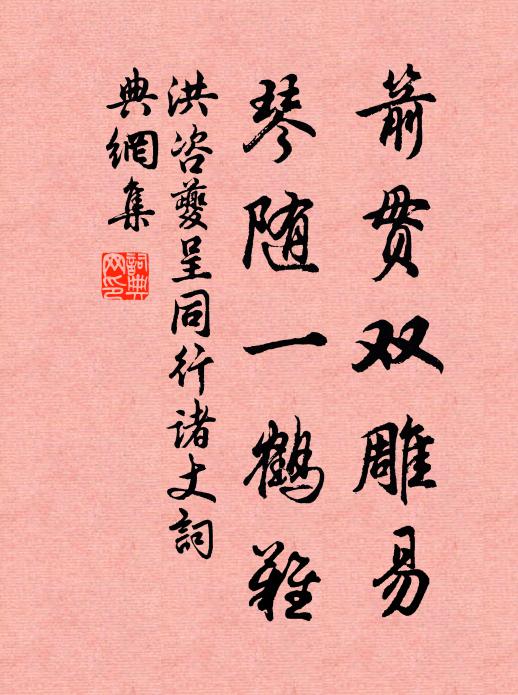 箭贯双雕易
琴随一鹤难
洪咨夔呈同行诸丈詞
典網集
詞典
网印